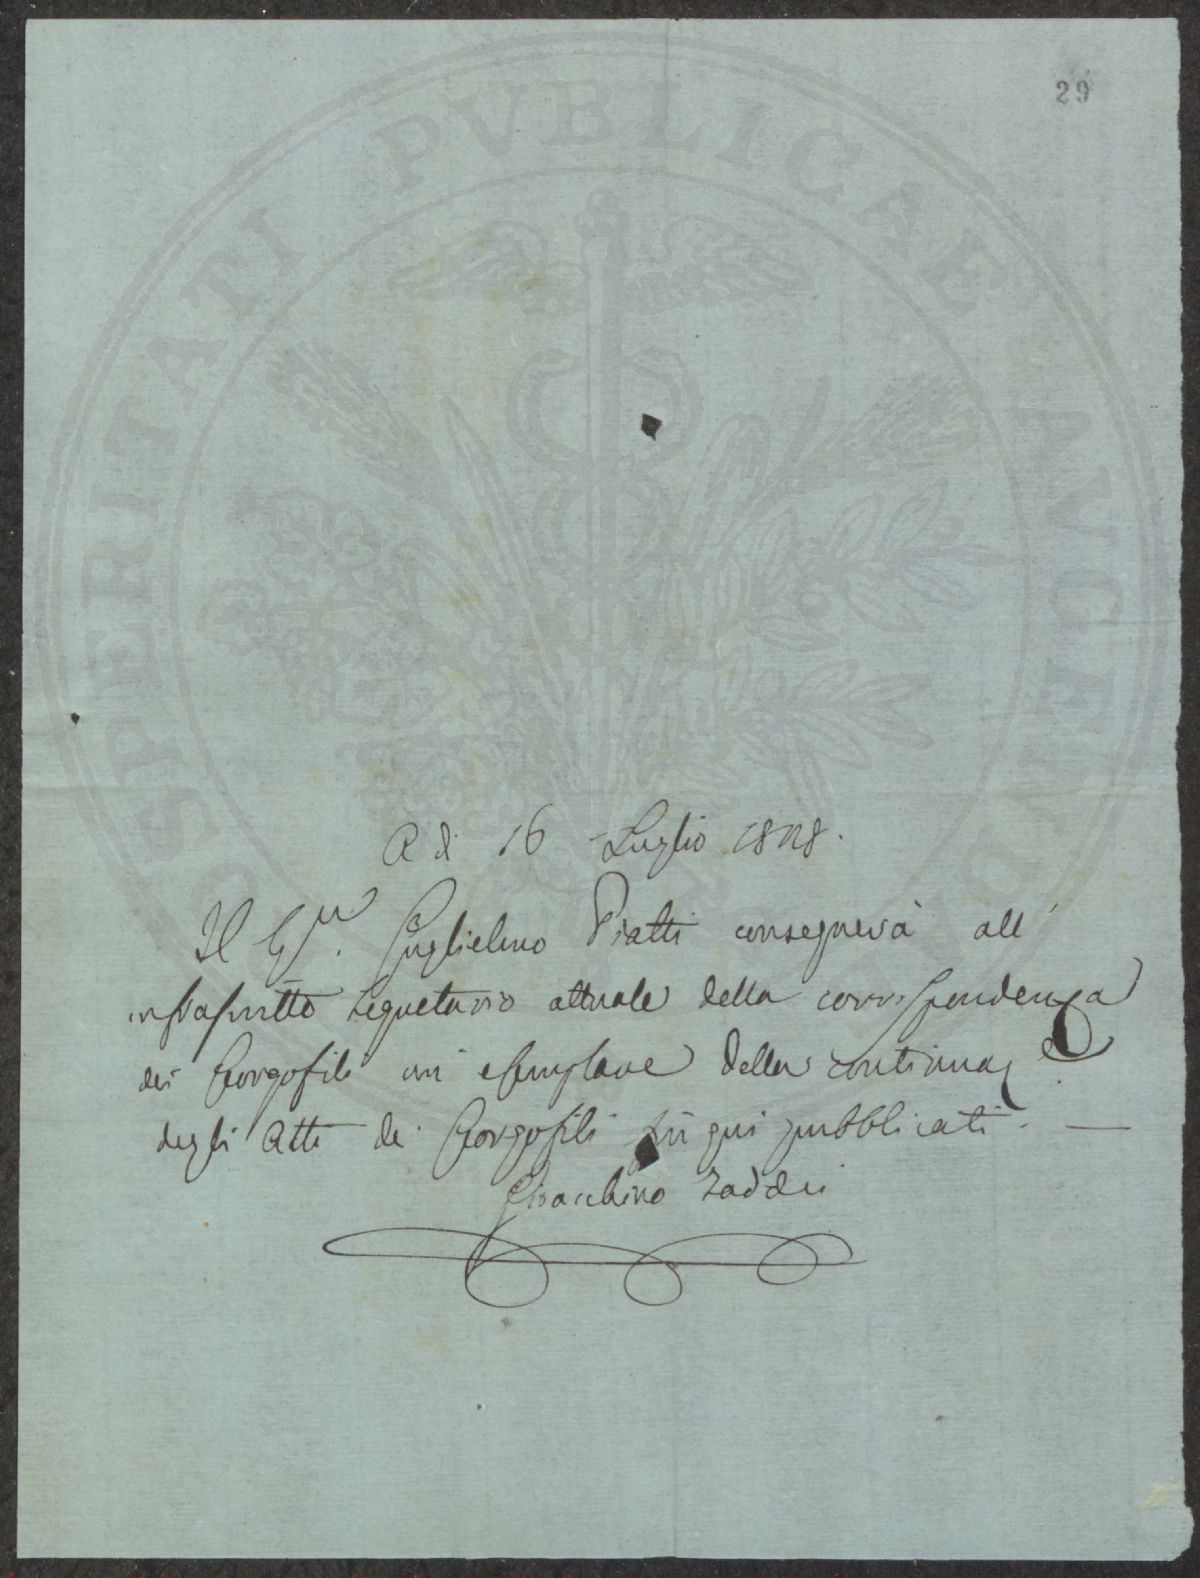 29
PROSPERITATI PVBLICAE AVGENDAE
A dì 16 Luglio 1828.
Il Sig.r Guglielmo Piatti consegnerà all'
infrascritto Segretario attuale della corrispondenza
dei Georgofili un esemplare della continuaz.e
degli Atti de' Georgofili fin qui pubblicati. —
Gioacchino Taddei